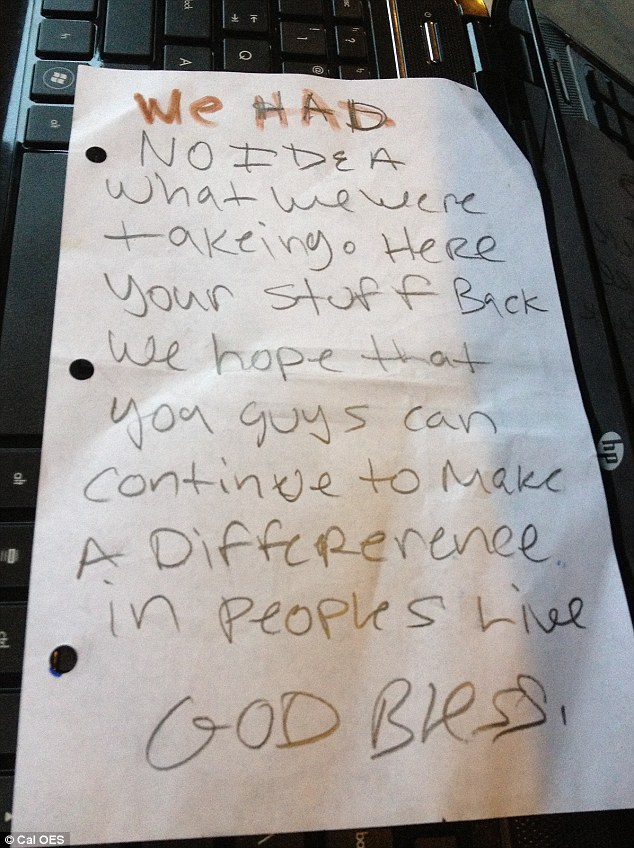 We HAD
NO IDEA
What we were
takeing. Here
your stuff Back
We hope that
you guys can
continue to Make
A Differerence
in peoples Live
GOD Bless.
hp
alt
A
Q
© Cal OES